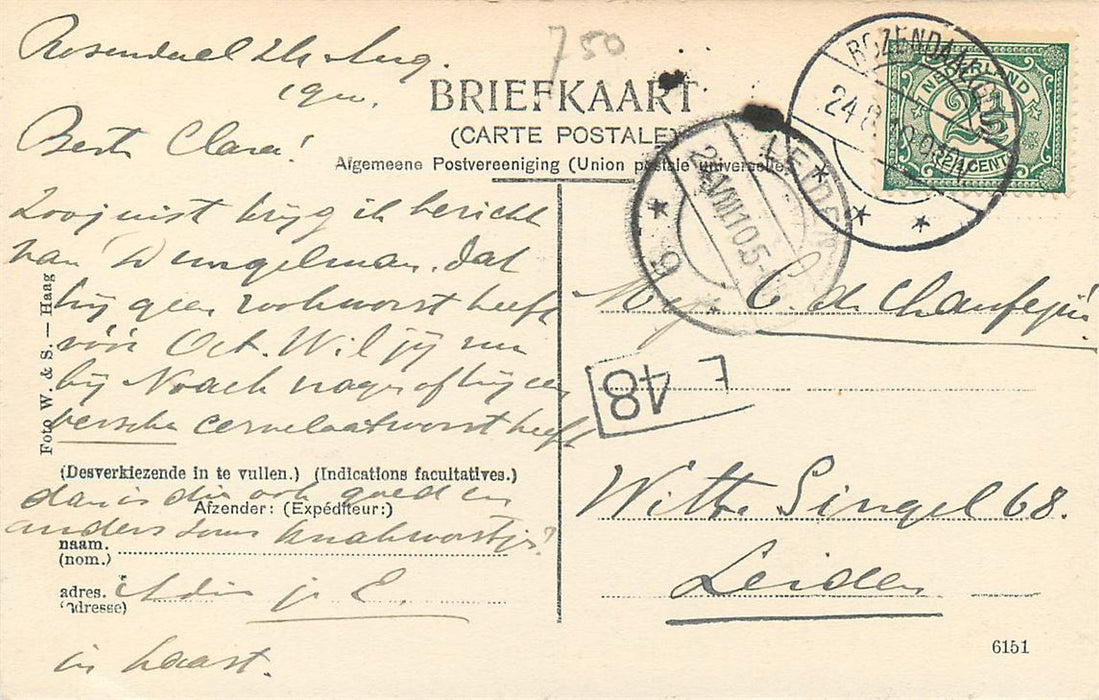 Rosendael 24 Aug.
1910.
750
BRIEFKAART
(CARTE POSTALE)
Algemeene Postvereeniging (Union postale universelle)
Beste Clara!
Zoo juist krijg ik bericht
van D Dungelman, dat
hij geen rookworst heeft
vóór Oct. Wil jij nu
bij Noach vragen of hij een
versche cervelaatworst heeft
(Desverkiezende in te vullen.) (Indications facultatives.)
dan is die ook goed en
Afzender: (Expéditeur:)
anders soms knakworstjes?
naam.
(nom.)
adres. Adieu je E.
(adresse)
in haast.
Foto W. & S. — Haag
ROZENDAAL
24.8.10
NEDERLAND
2½
2½ CENT
LEIDEN
24.VIII.10.5-
9
Mej C. de
48
E
Witte Singel 68.
Leiden
6151